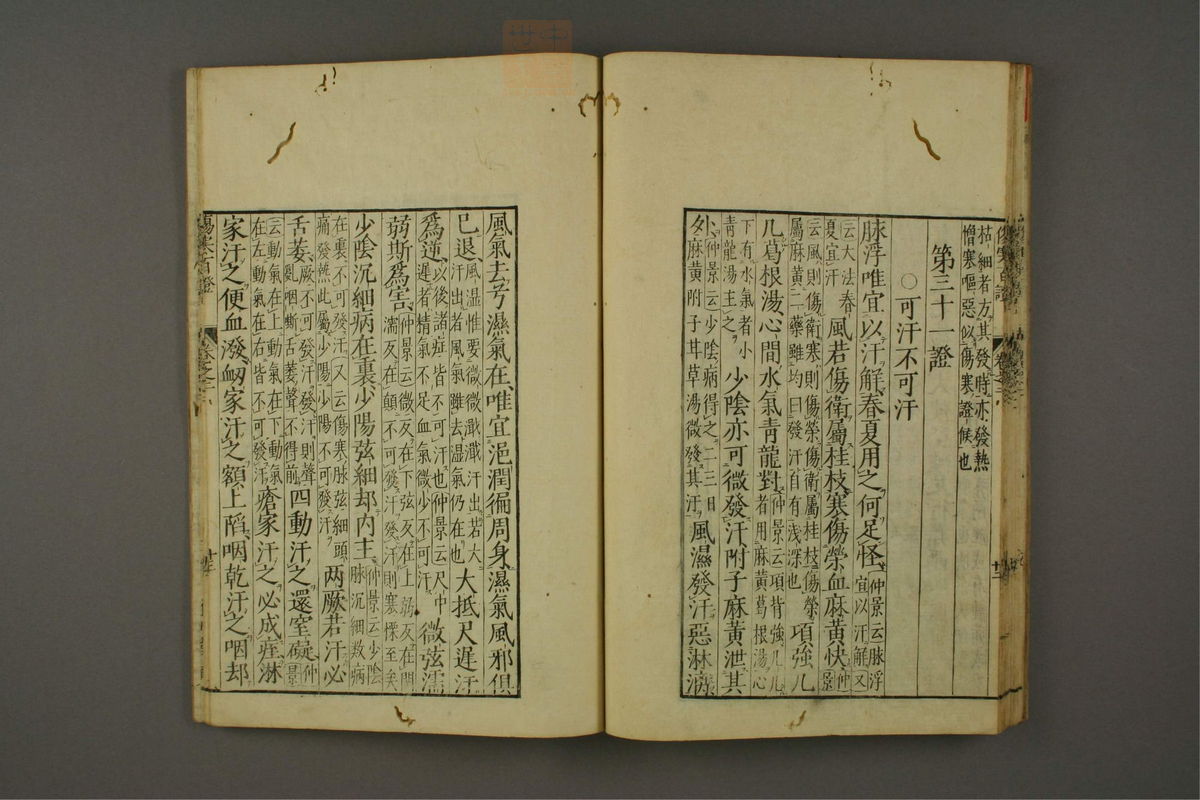 枯細者方其發時亦發熱
憎寒嘔惡似傷寒證候也
第三十一證
○可汗不可汗
脉浮唯宜以汗解春夏用之何足怪仲景云脉浮宜以汗解又
云大法春夏宜汗風若傷衛屬桂枝寒傷榮血麻黄快仲景
云風則傷衛寒則傷榮傷衛屬桂枝傷榮屬麻黄二藥雖均曰發汗自有浅深也項強几
几葛根湯心間水氣青龍對仲景云項背強几几者用麻黄葛根湯心
下有水氣者小青龍湯主之少陰亦可微發汗附子麻黄泄其
外仲景云少陰病得之二三日麻黄附子甘草湯微發其汗風濕發汗惡淋漓
風氣去兮濕氣在唯宜浥潤徧周身濕氣風邪俱
已退風温惟要微微濈濈汗出若大汗出者風氣雖去温氣仍在也大抵尺遲汗
為逆以後諸症皆不可汗也仲景云尺中遲者精氣不足血氣微少不可汗微弦濡
弱斯為害仲景云微反在下弦反在上弱反在関濡反在顛不可發汗發汗則寒慄至矣
少陰沉細病在裏少陽弦細却内主仲景云少陰脉沉細数病
在裏不可發汗又云傷寒脉弦細頭痛發熱此屬少陽少陽不可發汗两厥若汗必
舌萎厥不可發汗發汗則聲亂咽嘶舌萎聲不得前四動汗之還窒礙仲景
云動氣在上動氣在下動氣在左動氣在右皆不可發汗瘡家汗之必成痓淋
家汗之便血潑衂家汗之額上陷咽乾汗之咽却